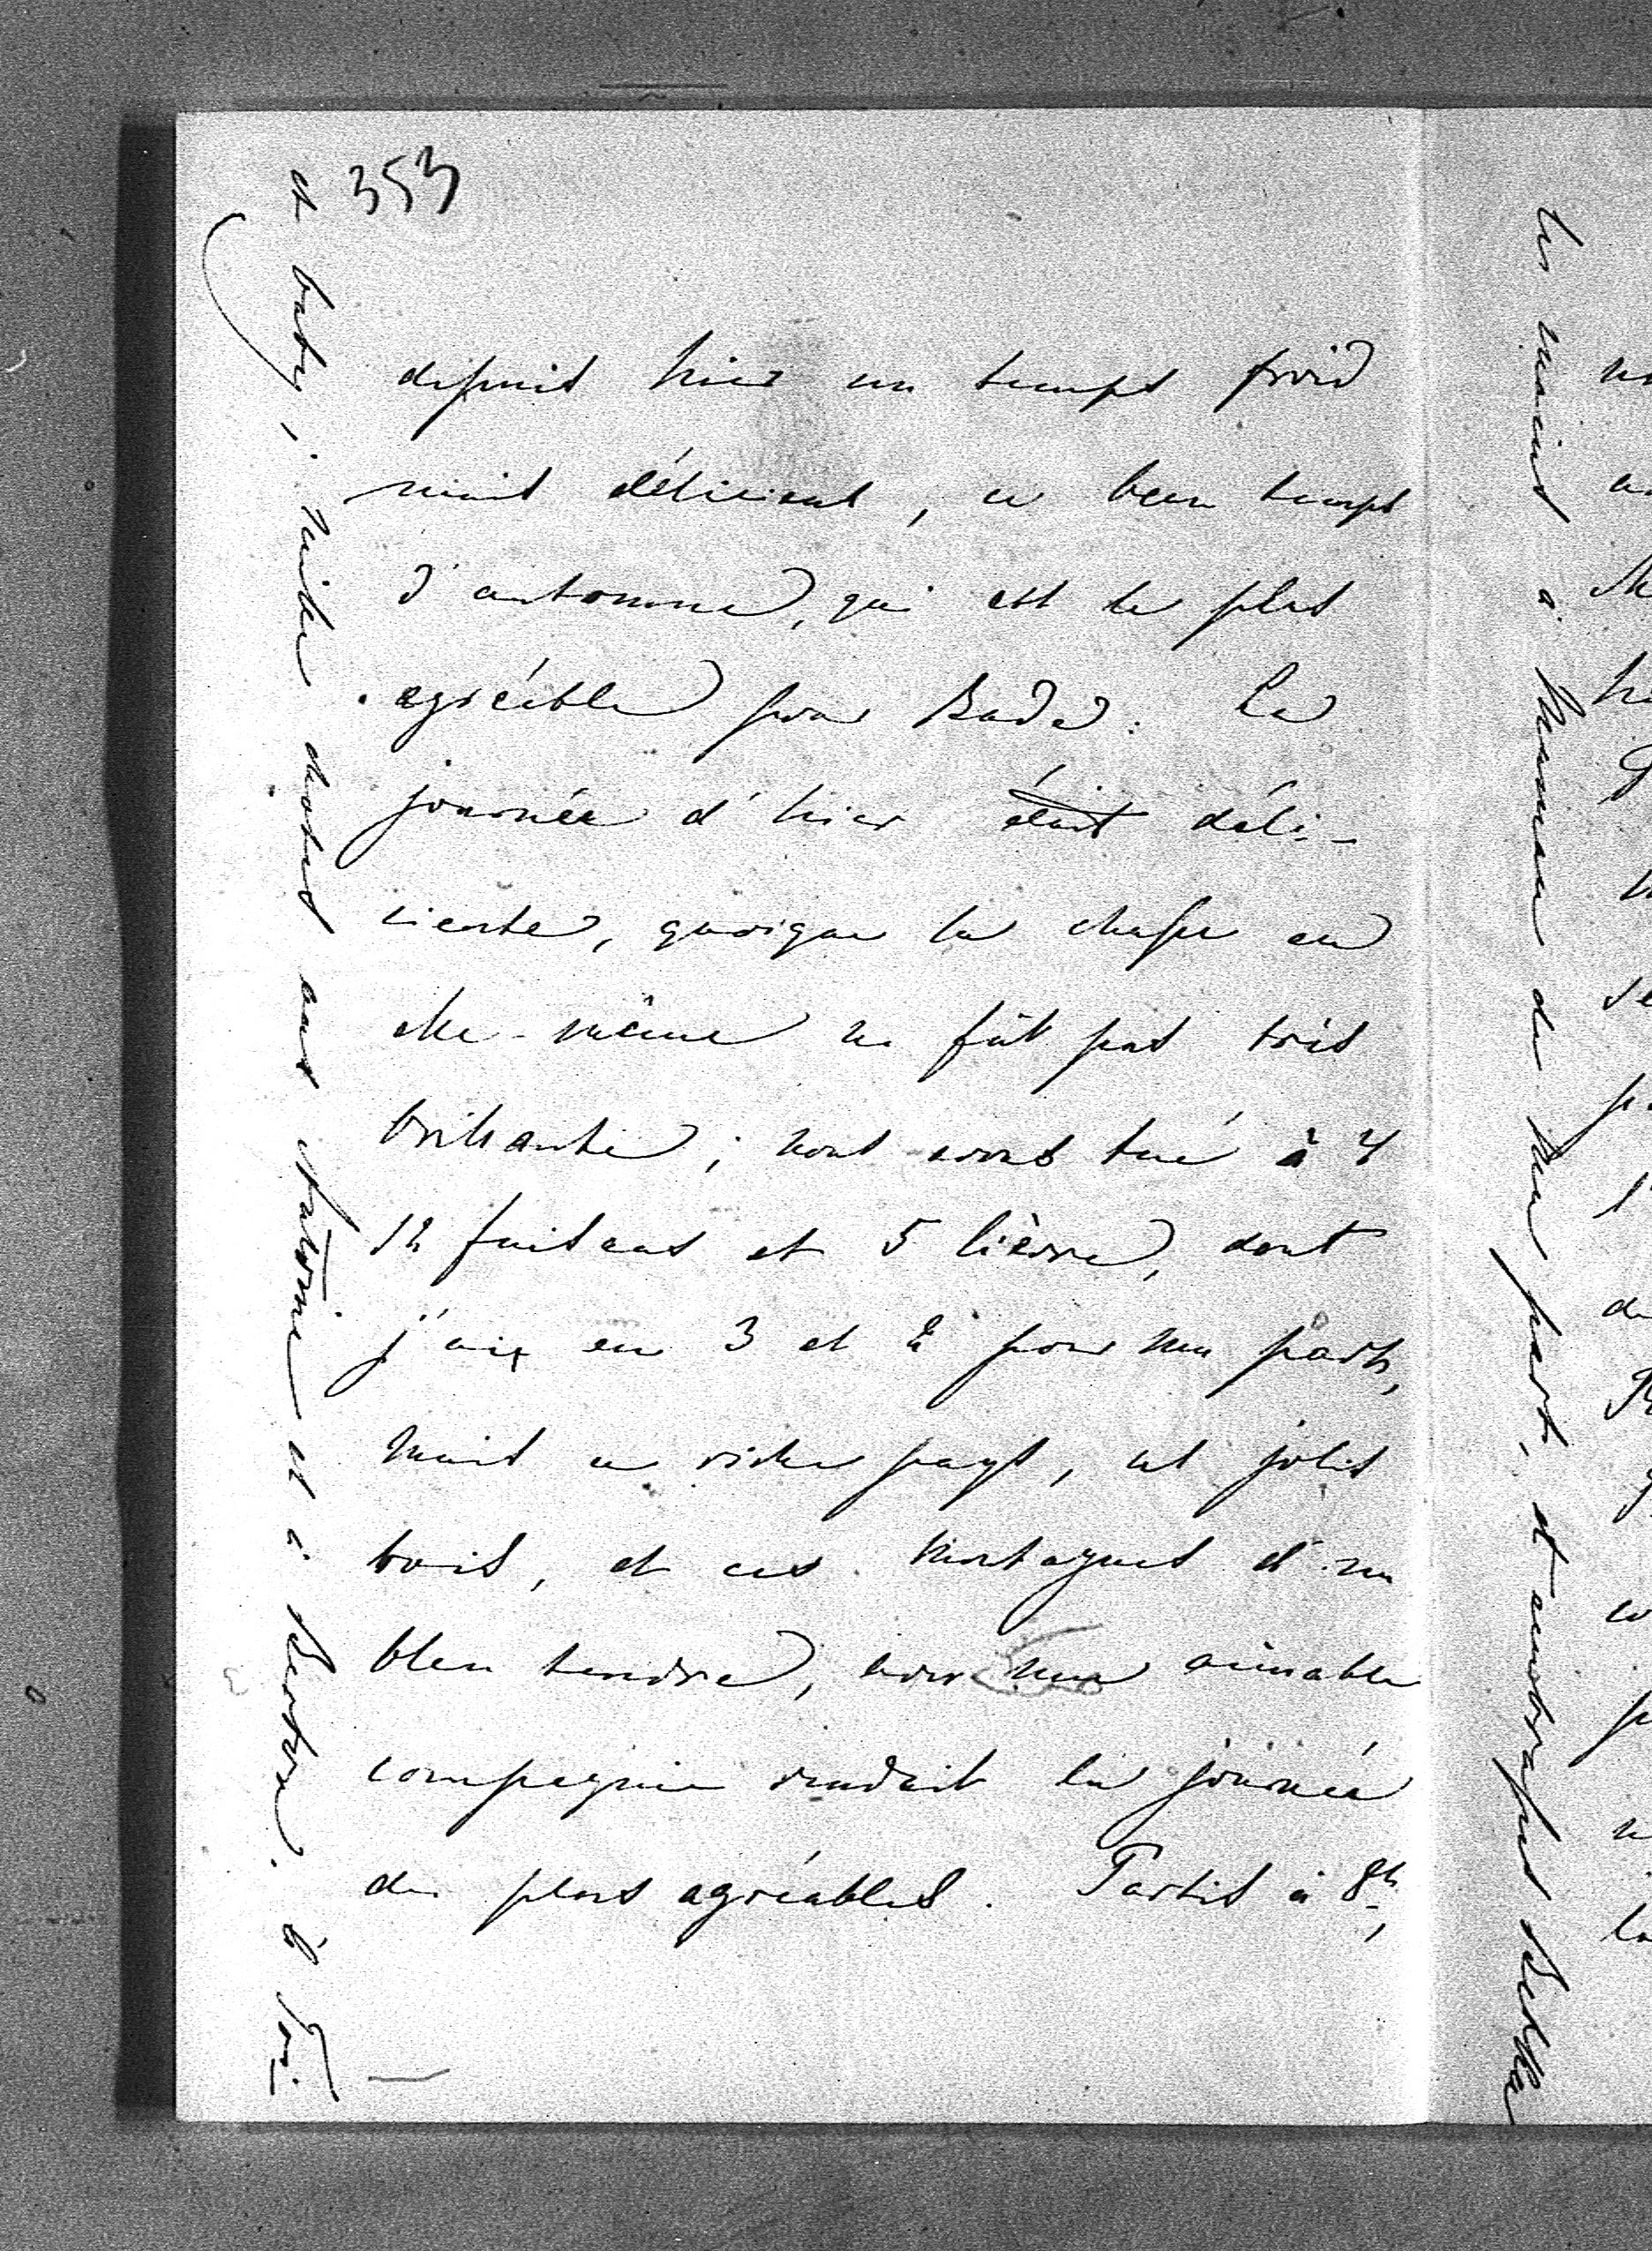 353
depuis hier un temps froid
mais délicieux, ce beau temps
d'automne, qui est le plus
agréable pour Bade. La
journée d'hier était déli-
cieuse, quoique la chasse en
elle-même ne fût pas très
brillante; nous avons tué à 4
12 faisans et 5 lièvre, dont
j'aix eu 3 et 2 pour ma part,
mais ce riche pays, ces jolis
bois, et ces montagnes d'un
bleu tendre, avec une aimable
compagnie rendait la journée
des plus agréables. Partis à 8h,
et baby, milles choses aux Antoine et à Bertha. à Toi
les mains à Maman de ma part, et embrasses